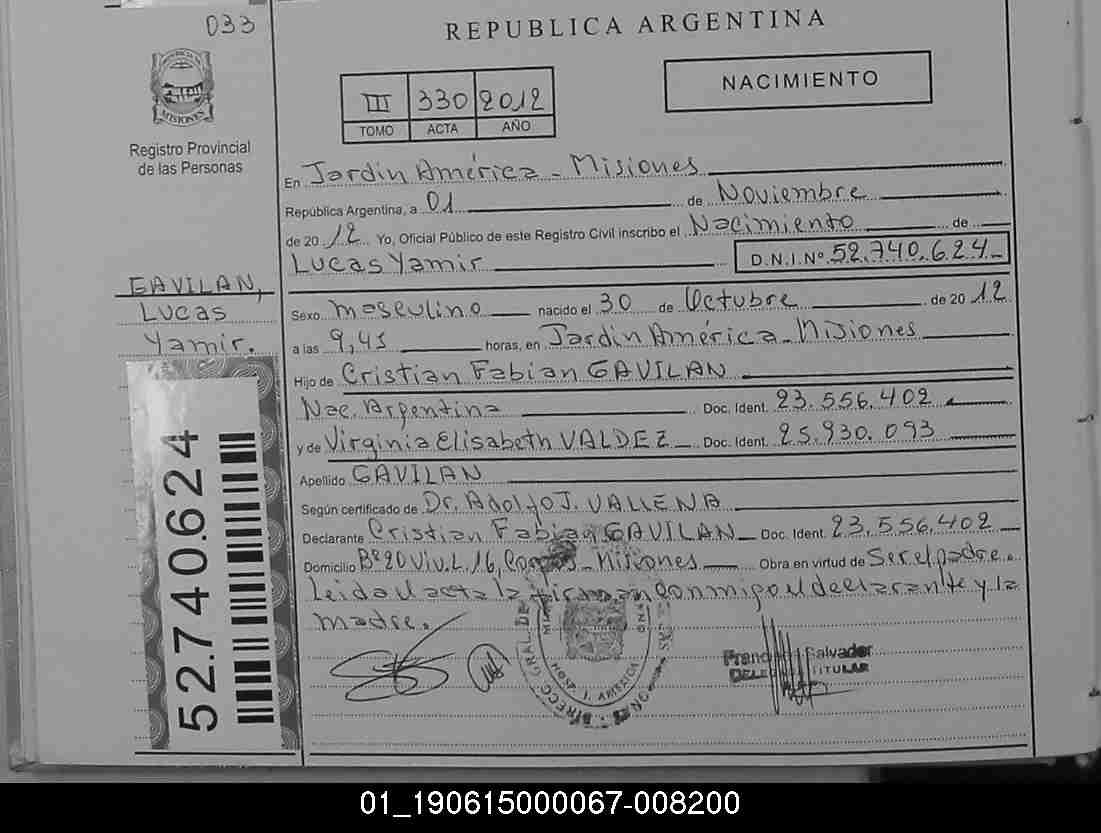 033
REPUBLICA ARGENTINA
PROVINCIA DE
MISIONES
Registro Provincial
de las Personas
III 330 2012
TOMO ACTA AÑO
NACIMIENTO
En Jardín América - Misiones
República Argentina, a 01 de Noviembre
de 2012 Yo, Oficial Público de este Registro Civil inscribo el Nacimiento de
Lucas Yamir D.N.I.Nº 52.740.624
GAVILAN,
Lucas
Yamir.
Sexo masculino nacido el 30 de Octubre de 2012
a las 9,45 horas, en Jardín América - Misiones
Hijo de Cristian Fabian GAVILAN
Nac. Argentina Doc. Ident. 23.556.402
y de Virginia Elisabeth VALDEZ Doc. Ident. 25.930.093
Apellido GAVILAN
Según certificado de Dr. Adolfo J. VALLENA
Declarante Cristian Fabian GAVILAN Doc. Ident. 23.556.402
Domicilio Bº 20 Viv. L. 16, Corpus - Misiones Obra en virtud de Ser el padre.
Leida el acta la firman conmigo el declarante y la
madre.
52.740.624
Francisco Salvador
TITULAR
01_190615000067-008200